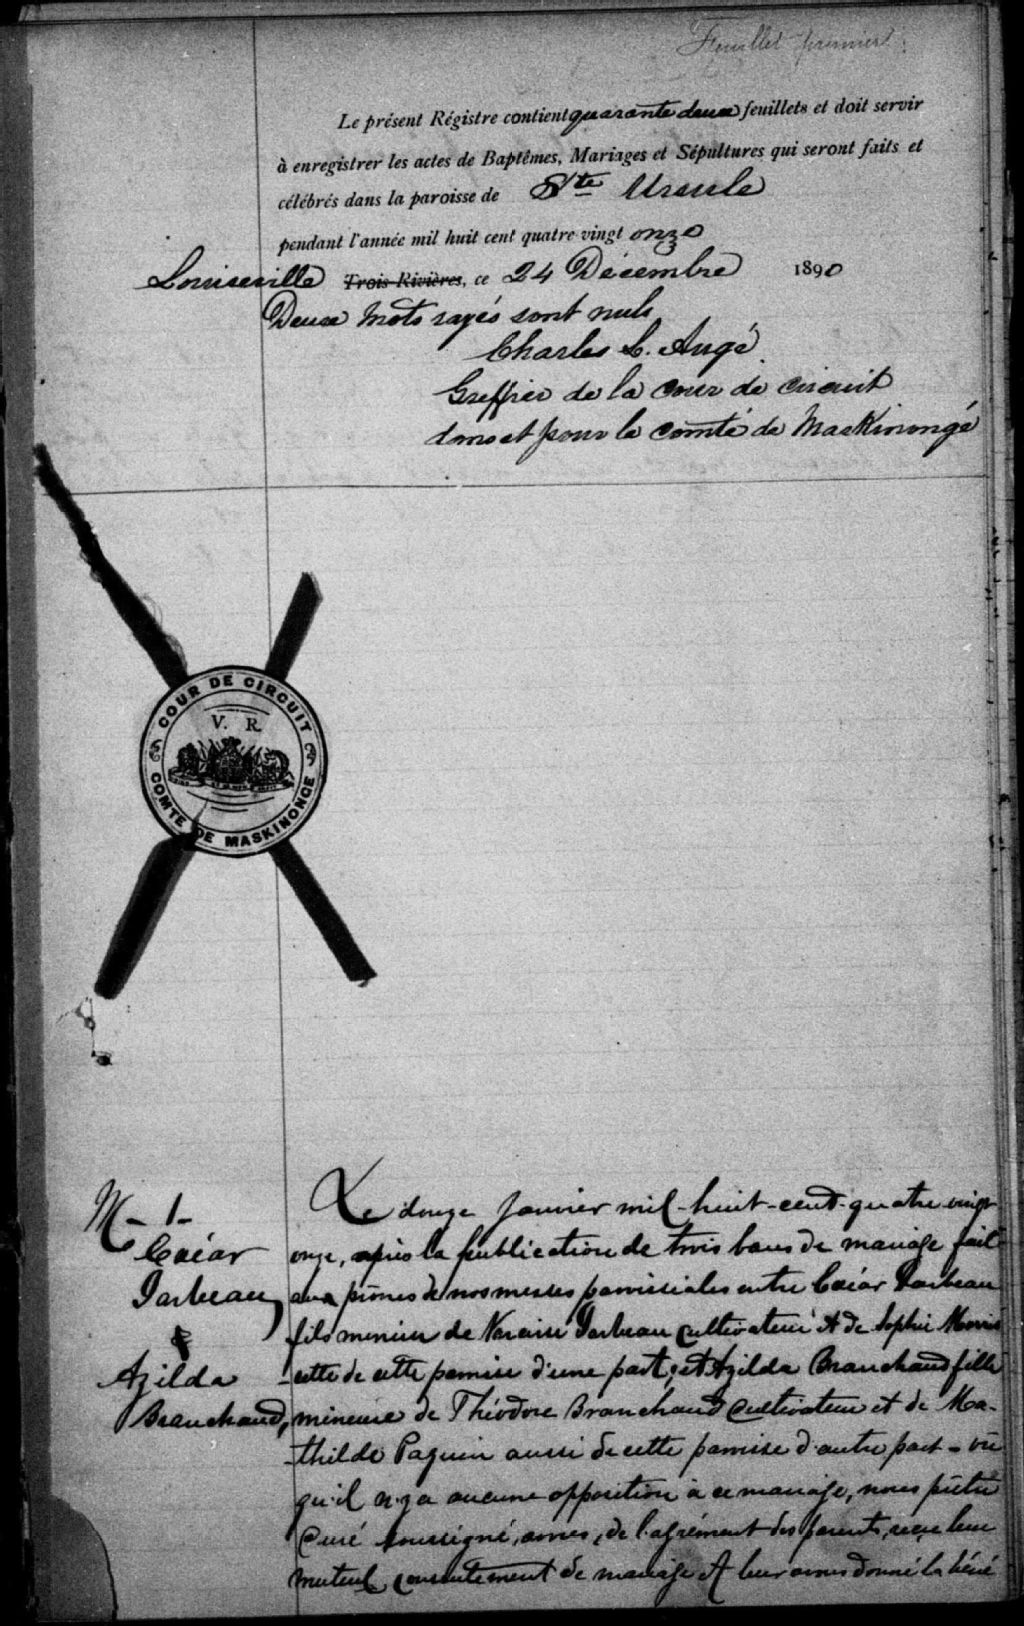 Feuillet premier.
Le présent Régistre contient quarante deux feuillets et doit servir
à enregistrer les actes de Baptêmes, Mariages et Sépultures qui seront faits et
célébrés dans la paroisse de Ste Ursule
pendant l'année mil huit cent quatre-vingt onze
Louiseville Trois-Rivières, ce 24 Décembre 1890
Deux mots rayés sont nuls
Charles L. Augé
Greffier de la Cour de circuit
dans et pour le comté de Maskinongé
COUR DE CIRCUIT
V. R.
COMTE DE MASKINONGE
M-1-
Cæéar
Jarbeau
&
Azilda
Branchaud,
Le douze Janvier mil-huit-cent-quatre vingt
onze, après la publication de trois bans de mariage fait
aux prônes de nos messes paroissiales entre Cæéar Jarbeau
fils mineur de Narcisse Jarbeau cultivateur et de Sophie Morris
-sette de cette paroisse d'une part, et Azilda Branchaud fille
mineure de Théodore Branchaud cultivateur et de Ma-
-thilde Paquin aussi de cette paroisse d'autre part - vu
qu'il n'y a aucune opposition à ce mariage, nous prêtre
Curé soussigné, avons, de l'agrément des parents, reçu leur
mutuel consentement de mariage et leur avons donné la béné